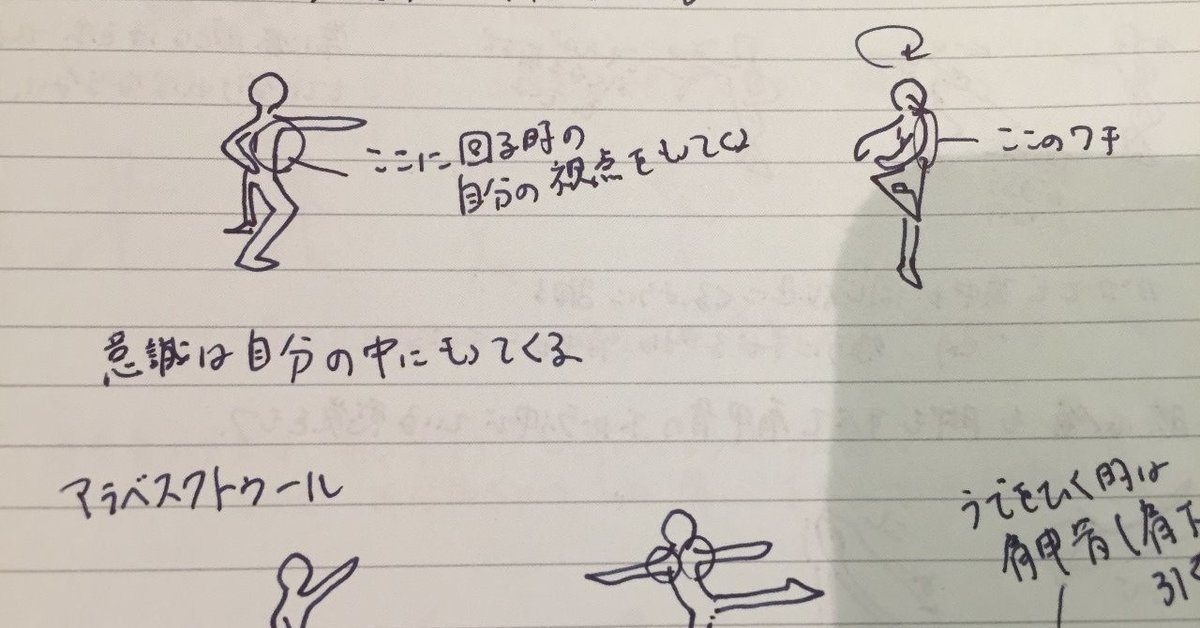 ここに回る時の
自分の視点をもってく
ここのワキ
意識は自分の中にもってくる
アラベスクトゥール
うでをひく時は
肩甲骨し肩下
引く